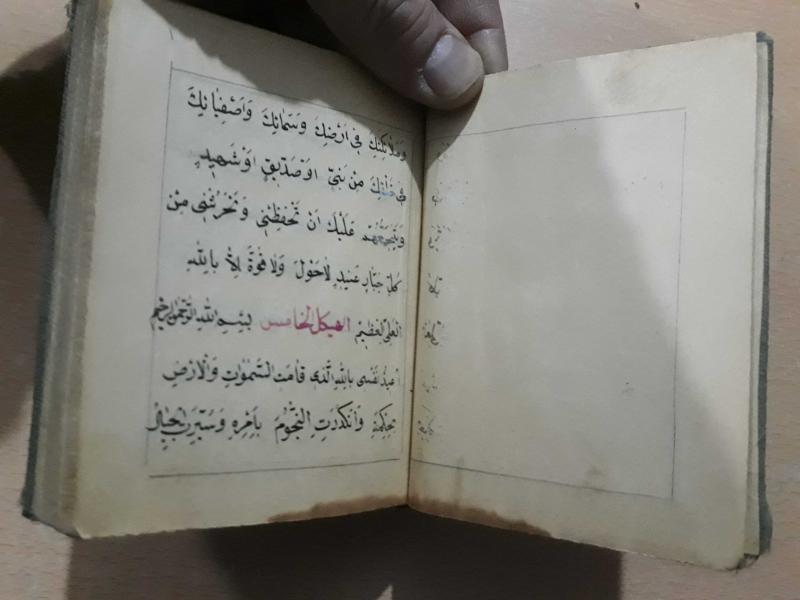 وَمَلَائِكَتِكَ فِي اَرْضِكَ وَسَمَائِكَ وَاَصْفِيَائِكَ
فِي خَلْقِكَ مِنْ نَبِيٍّ اَوْ صِدِّيقٍ اَوْ شَهِيدٍ
عَلَيْكَ اَنْ تَحْفَظَنِي وَتَحْرُسَنِي مِنْ
كُلِّ جَبَّارٍ عَنِيدٍ لَاحَوْلَ وَلَا قُوَّةَ اِلَّا بِاللّٰهِ
الْعَلِيِّ الْعَظِيمِ الهيكل الخامس بِسْمِ اللّٰهِ الرَّحْمٰنِ الرَّحِيمِ
اُعِيذُ نَفْسِي بِاللّٰهِ الَّذِي قَامَتِ السَّمٰوَاتُ وَالْاَرْضُ
بِحِكْمَتِهِ وَانْكَدَرَتِ النُّجُومُ بِاَمْرِهِ وَسُيِّرَتِ الْجِبَالُ